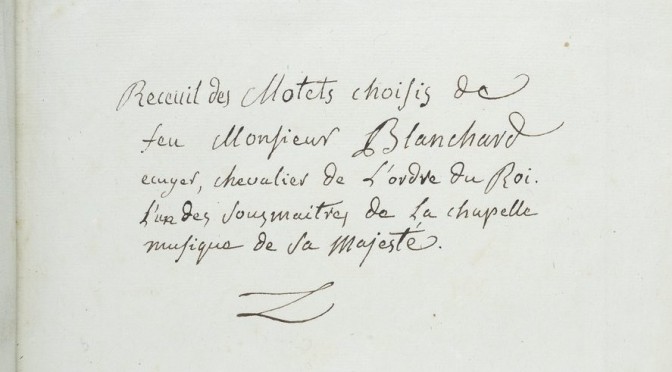 Receuil des Motets choisis de
feu Monsieur Blanchard
ecuyer, chevalier de L'ordre du Roi.
L'un des sousmaitres de La chapelle
musique de Sa Majesté.